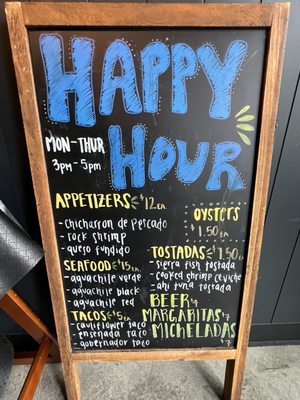 HAPPY
HOUR
MON-THUR
3PM - 5PM
APPETIZERS $12 EA
- chicharron de pescado
- rock shrimp
- queso fundido
OYSTERS
$1.50 EA
SEAFOOD $15 EA
- aguachile verde
- aguachile black
- aguachile red
TOSTADAS $7.50 EA
- sierra fish tostada
- cooked shrimp ceviche
- ahi tuna tostada
TACOS $5 EA
- cauliflower taco
- ensenada taco
- gobernador taco
BEER
MARGARITAS
MICHELADAS